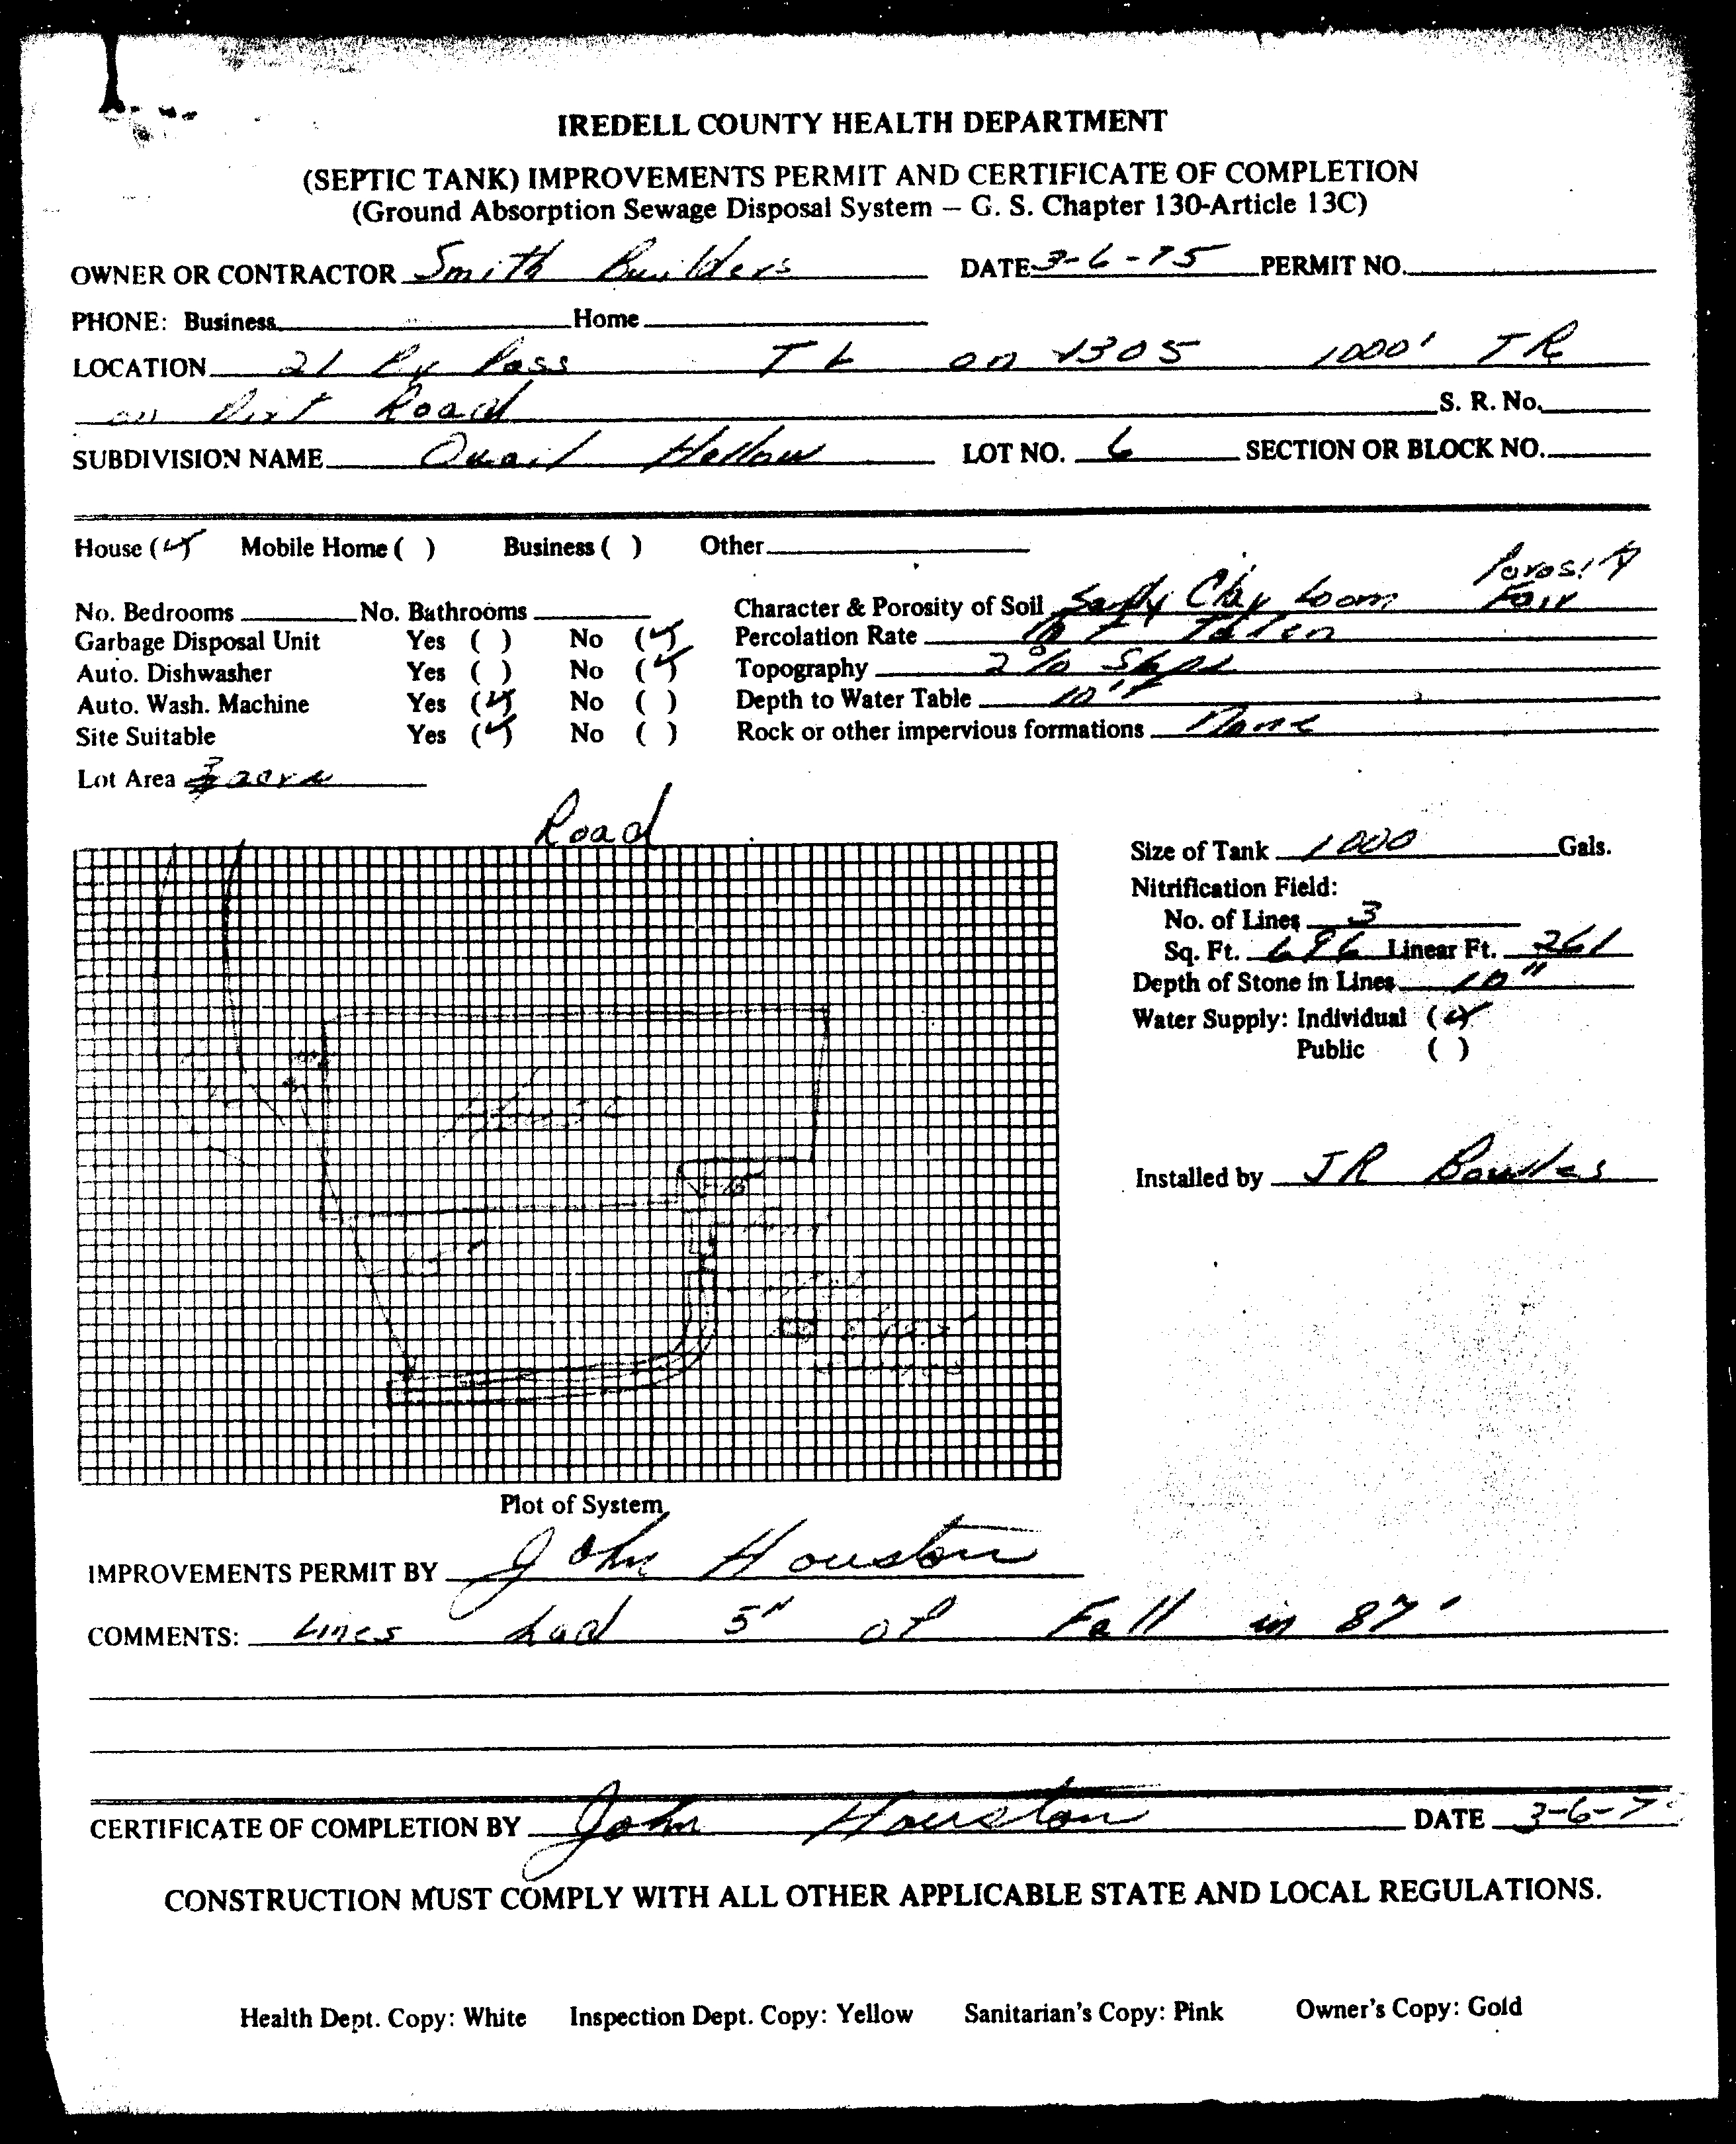 IREDELL COUNTY HEALTH DEPARTMENT
(SEPTIC TANK) IMPROVEMENTS PERMIT AND CERTIFICATE OF COMPLETION
(Ground Absorption Sewage Disposal System – G. S. Chapter 130-Article 13C)
OWNER OR CONTRACTOR Smith Builders DATE 3-6-75 PERMIT NO.
PHONE: Business Home
LOCATION 21 By Pass TL on 1305 1000' TR
on Dirt Road S. R. No.
SUBDIVISION NAME Quail Hollow LOT NO. 6 SECTION OR BLOCK NO.
House (✓) Mobile Home ( ) Business ( ) Other
No. Bedrooms No. Bathrooms Character & Porosity of Soil Sandy Clay Loam Porosity Fair
Garbage Disposal Unit Yes ( ) No (✓) Percolation Rate Not Taken
Auto. Dishwasher Yes ( ) No (✓) Topography 2% Slope
Auto. Wash. Machine Yes (✓) No ( ) Depth to Water Table 10'+
Site Suitable Yes (✓) No ( ) Rock or other impervious formations None
Lot Area acre
Road
House
15'
Size of Tank 1000 Gals.
Nitrification Field:
No. of Lines 3
Sq. Ft. 696 Linear Ft. 261
Depth of Stone in Lines 10"
Water Supply: Individual (✓)
Public ( )
Installed by JR Bowles
Plot of System
IMPROVEMENTS PERMIT BY John Houston
COMMENTS: Lines had 5" of Fall in 87'
CERTIFICATE OF COMPLETION BY John Houston DATE 3-6-7
CONSTRUCTION MUST COMPLY WITH ALL OTHER APPLICABLE STATE AND LOCAL REGULATIONS.
Health Dept. Copy: White Inspection Dept. Copy: Yellow Sanitarian's Copy: Pink Owner's Copy: Gold